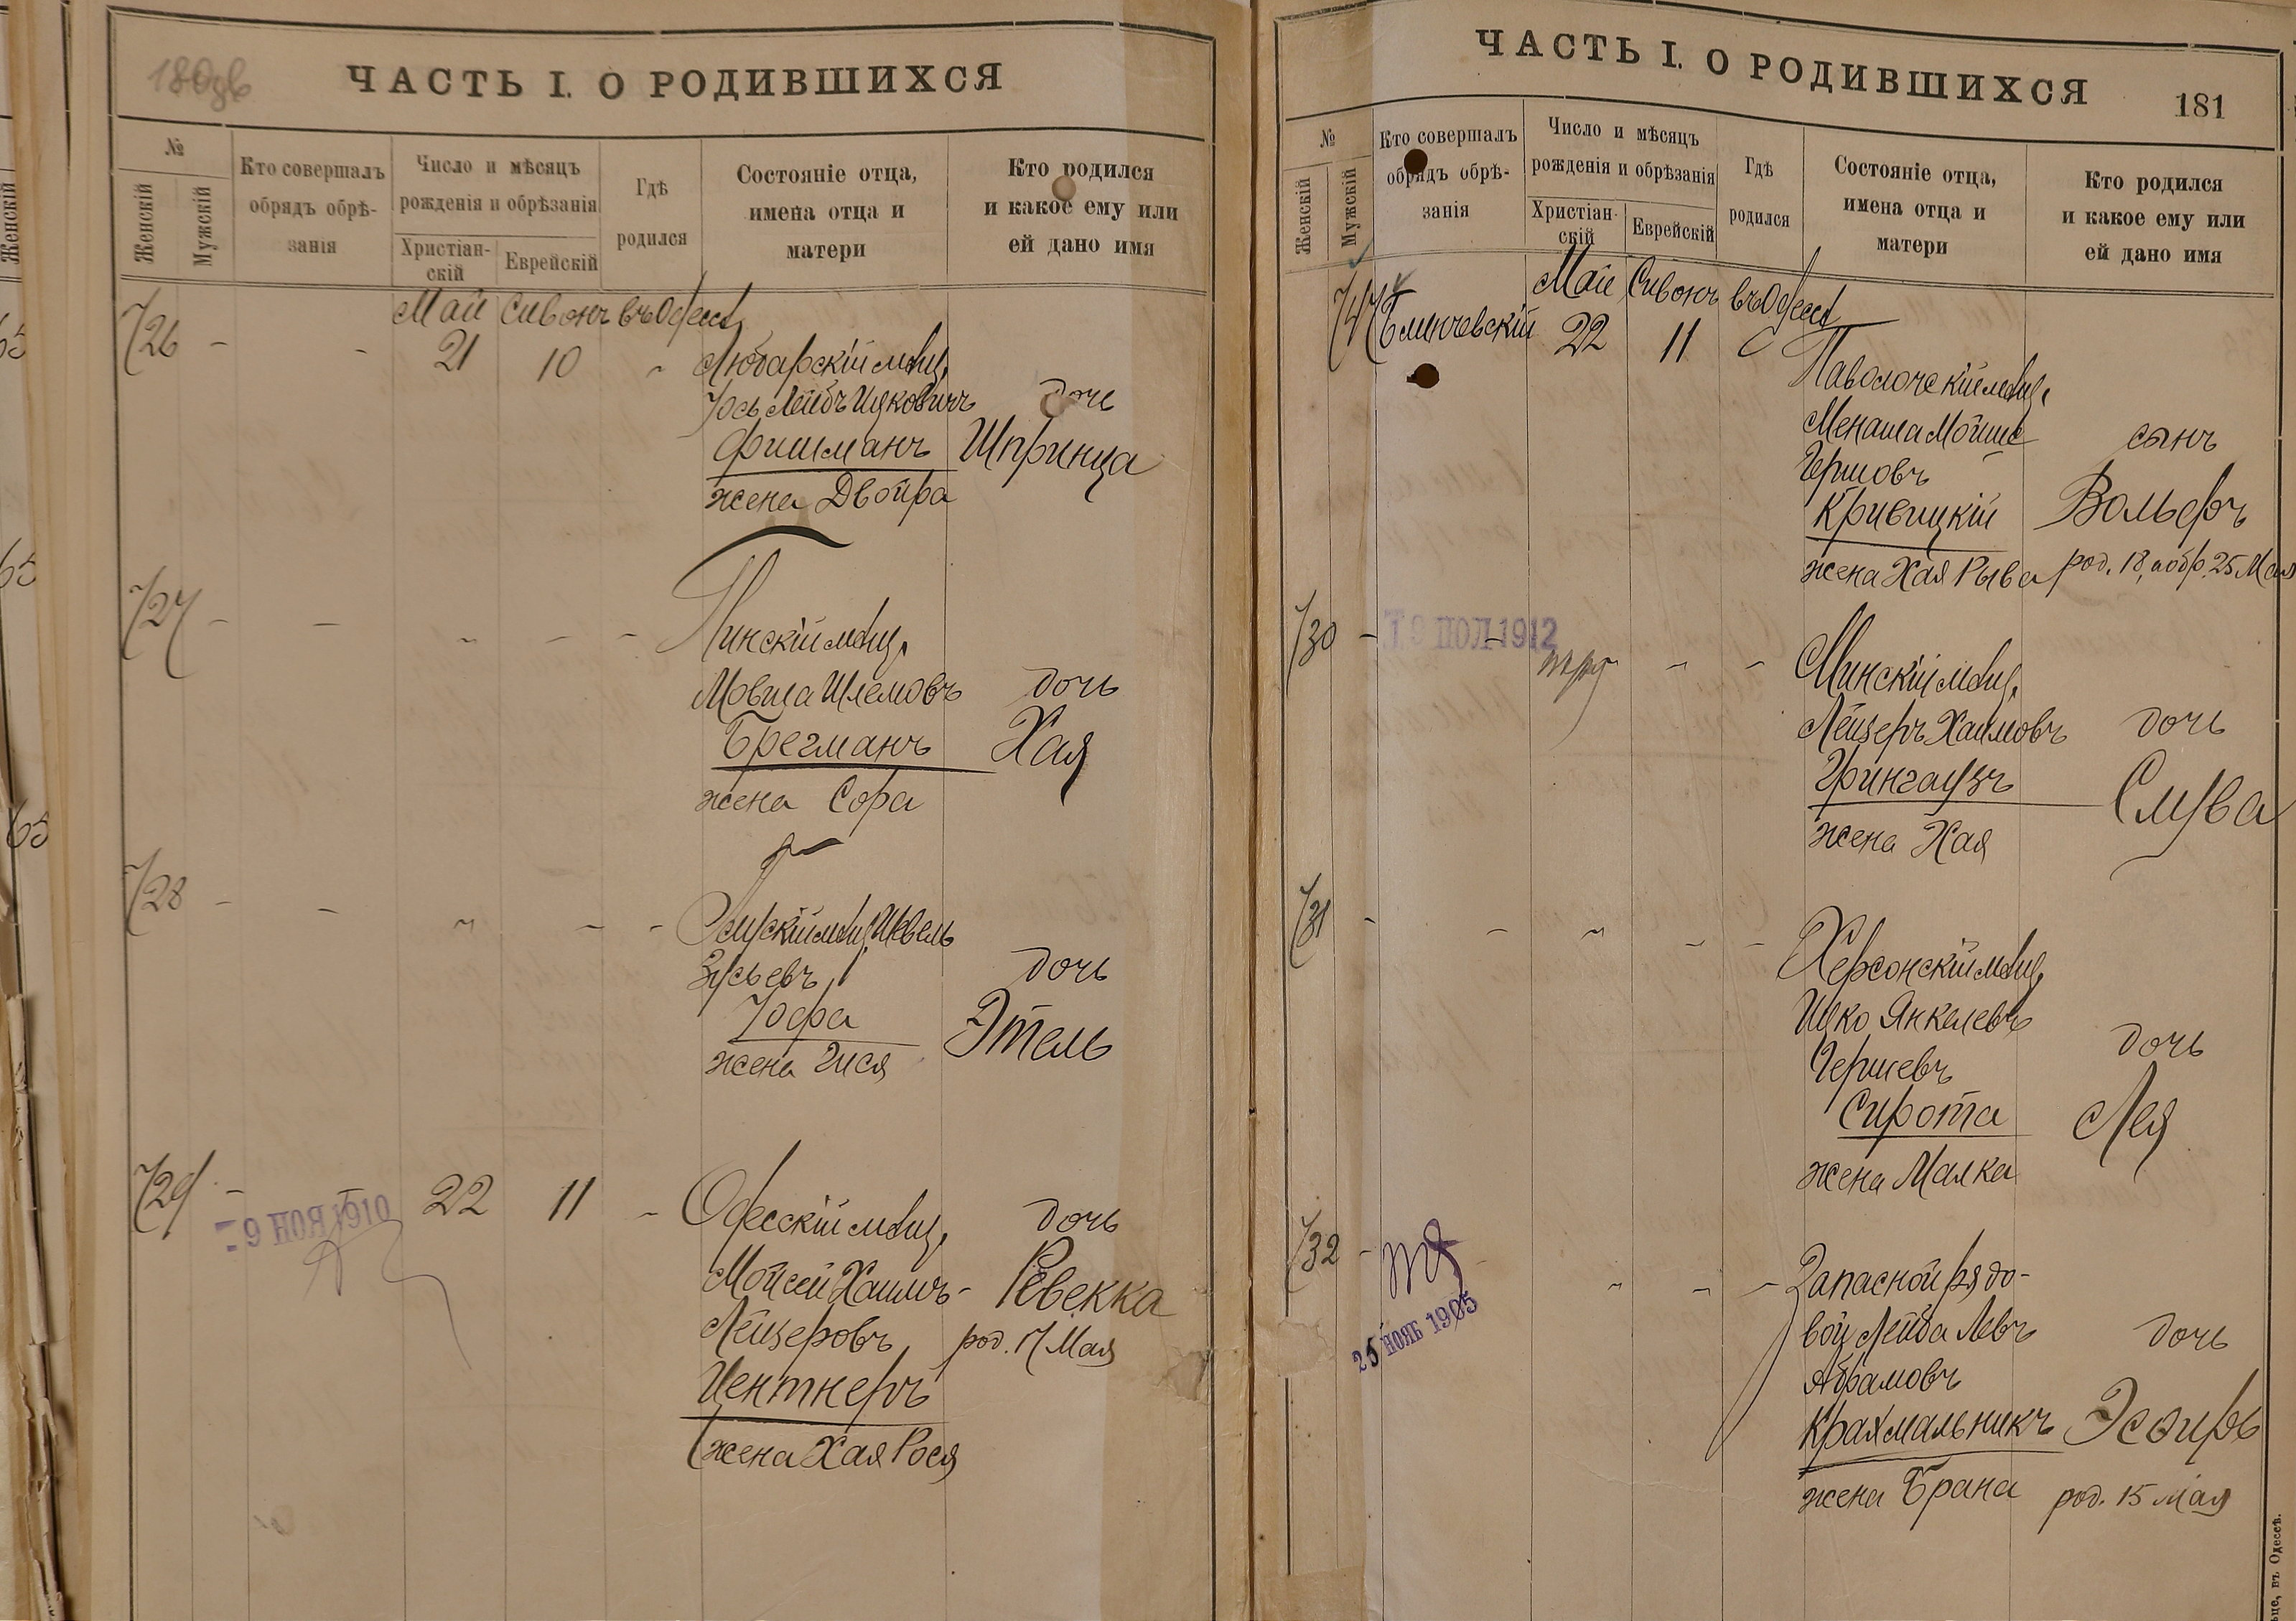 180об
ЧАСТЬ I. О РОДИВШИХСЯ
№
Женскій
Мужскій
Кто совершалъ
обрядъ обрѣ-
занія
Число и мѣсяцъ
рожденія и обрѣзанія
Христіан-
скій
Еврейскій
Гдѣ
родился
Состояніе отца,
имена отца и
матери
Кто родился
и какое ему или
ей дано имя
Май Сивонъ въ Одессѣ
726 - - 21 10 " Любарскій мѣщ.
Іось Лейбъ Ицковичъ дочь
Фишманъ Шпринца
жена Двойра
727 - - " - - Пинскій мѣщ.
Мовша Шлемовъ дочь
Брегманъ Хая
жена Сора
728 - - " - -
мѣщ. Шевель
Зусьевъ дочь
Іоффа Этель
жена Гися
729 - - 22 11 - Одесскій мѣщ. дочь
- 9 НОЯ 1910
Мойсей Хаимъ- Ревекка
Лейзеровъ род. 17 Мая
Центнеръ
жена Хая Рося
ЧАСТЬ I. О РОДИВШИХСЯ
181
№
Женскій
Мужскій
Кто совершалъ
обрядъ обрѣ-
занія
Число и мѣсяцъ
рожденія и обрѣзанія
Христіан-
скій
Еврейскій
Гдѣ
родился
Состояніе отца,
имена отца и
матери
Кто родился
и какое ему или
ей дано имя
Май Сивонъ въ Одессѣ
747 Блинчевскій 22 11 Паволочскій мѣщ.
Менаша Мойше
Гершовъ сынъ
Кривицкій Вольфъ
жена Хая Рыва род. 18, а обр. 25 Мая
730 - - - - Минскій мѣщ.
1912
Лейзеръ Хаимовъ дочь
Грингаузъ Слува
жена Хая
731 - - " - - Херсонскій мѣщ.
Ицко Янкелевъ
Гершевъ дочь
Сирота Лея
жена Малка
732 - - " - - Запасной рядо-
25 НОЯБ 1905
вой Лейба Левъ дочь
Абрамовъ
Крахмальникъ Эсфирь
жена Брана род. 15 Мая
въ Одессѣ.